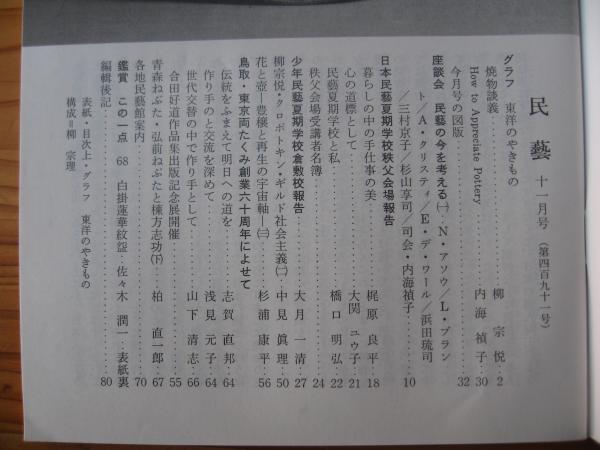 民藝 十一月号 (第四百九十一号)
グラフ 東洋のやきもの………柳 宗悦…2
焼物談義………内海 禎子…30
How to Appreciate Pottery
今月号の図版………32
座談会 民藝の今を考える㈠ N・アソウ/L・ブラン
ト/A・クリスティ/E・デ・ワール/浜田琉司
/三村京子/杉山享司/司会・内海禎子………10
日本民藝夏期学校秩父会場報告
暮らしの中の手仕事の美………梶原 良平…18
心の道標として………大関 ユウ子…21
民藝夏期学校と私………橋口 明弘…22
秩父会場受講者名簿………24
少年民藝夏期学校倉敷校報告………大月 一清…27
柳宗悦・クロポトキン・ギルド社会主義㈡…中見 眞理…50
花と壺―豊穣と再生の宇宙軸―㈢………杉浦 康平…56
鳥取・東京両たくみ創業六十周年によせて
伝統をふまえて明日への道を………志賀 直邦…64
作り手との交流を深めて………浅見 元子…64
世代交替の中で作り手として………山下 清志…66
合田好道作品集出版記念展開催………55
青森ねぶた・弘前ねぷたと棟方志功㈦………柏 直一郎…67
各地民藝館案内………70
鑑賞 この一点 68 白掛蓮華紋盌 佐々木 潤一…表紙裏
編輯後記………80
表紙・目次上・グラフ 東洋のやきもの
構成=柳 宗理